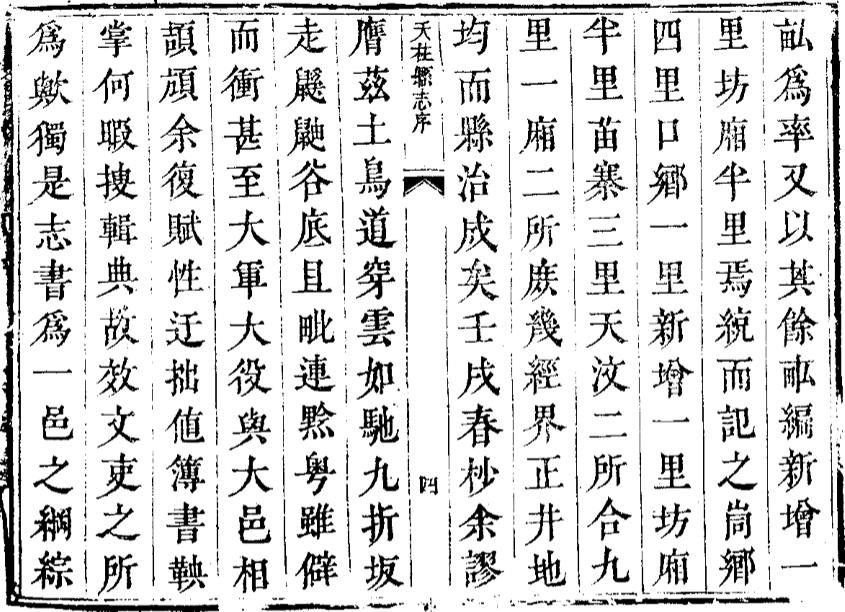 畝為率又以其餘畝編新增一
里坊廂半里焉統而記之峝鄉
四里口鄉一里新增一里坊廂
半里苗寨三里天汶二所合九
里一廂二所庶幾經界正井地
均而縣治成矣壬戌春杪余謬
天柱縣志序
四
膺茲土鳥道穿雲如馳九折坂
走鼴鼬谷底且毗連黔粵雖僻
而衝甚至大軍大役與大邑相
頡頏余復賦性迂拙値簿書鞅
掌何暇搜輯典故效文吏之所
為歟獨是志書為一邑之綱綜